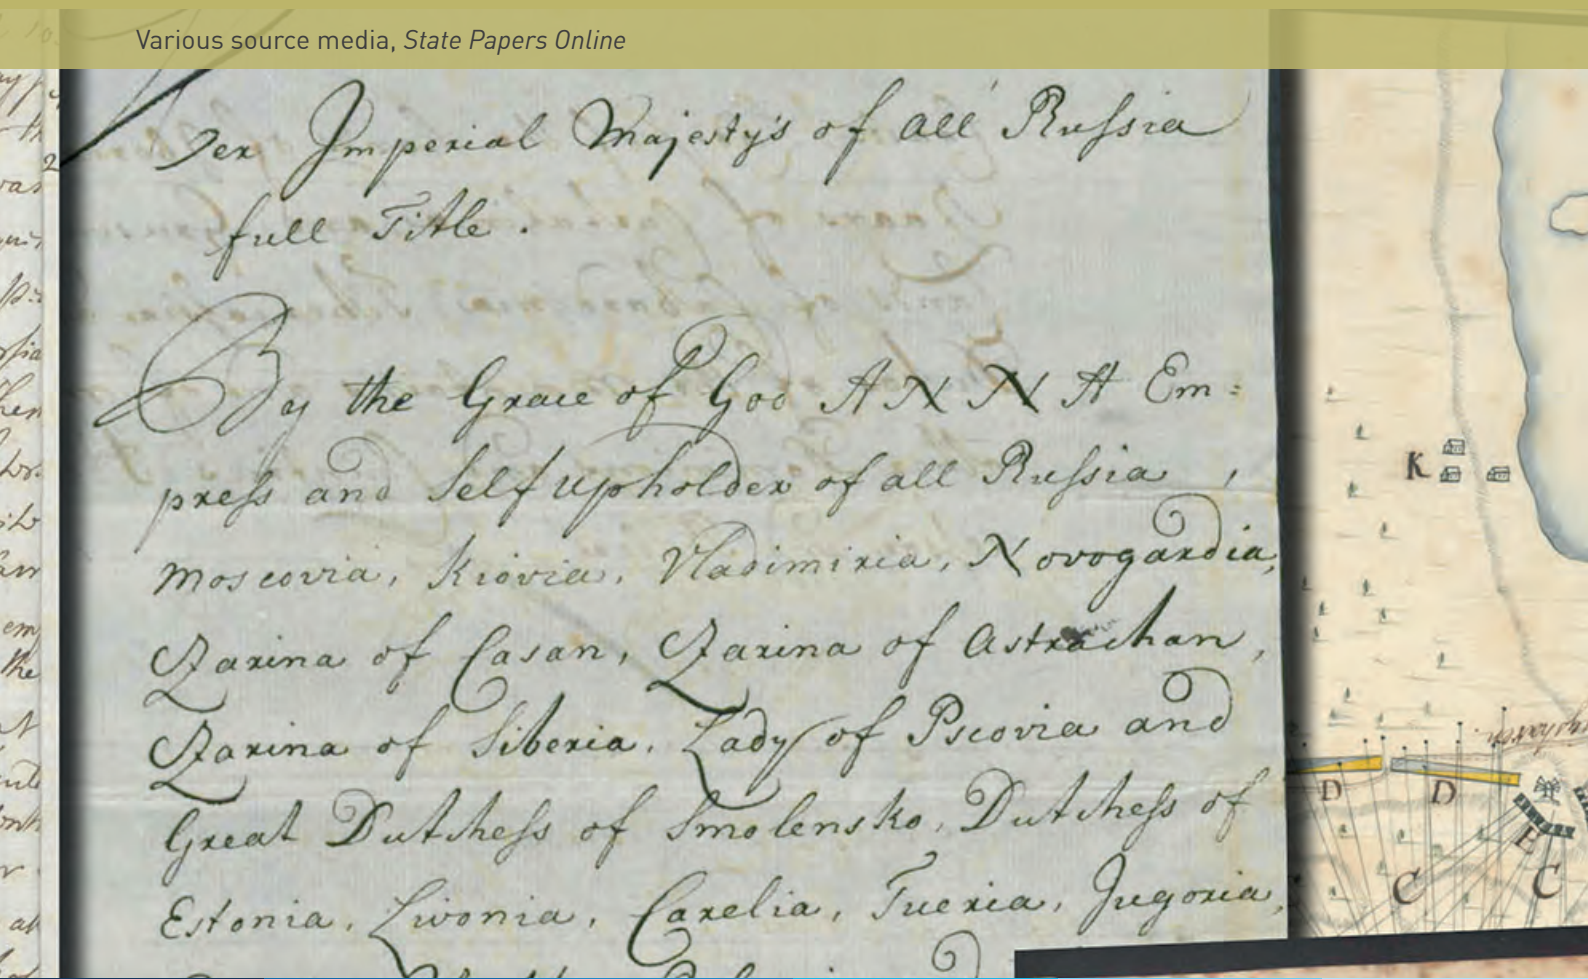 Various source media, State Papers Online
Her Imperial Majesty's of all Russia
full Title.
By the Grace of God ANNA Em=
press and Selfupholder of all Russia,
Moscovia, Kiovia, Vladimiria, Novogardia,
Czarina of Casan, Czarina of Astrachan,
Czarina of Siberia, Lady of Pscovia and
Great Dutchess of Smolensko, Dutchess of
Estonia, Livonia, Carelia, Tueria, Jugoria,
K
D D
E
C C
the